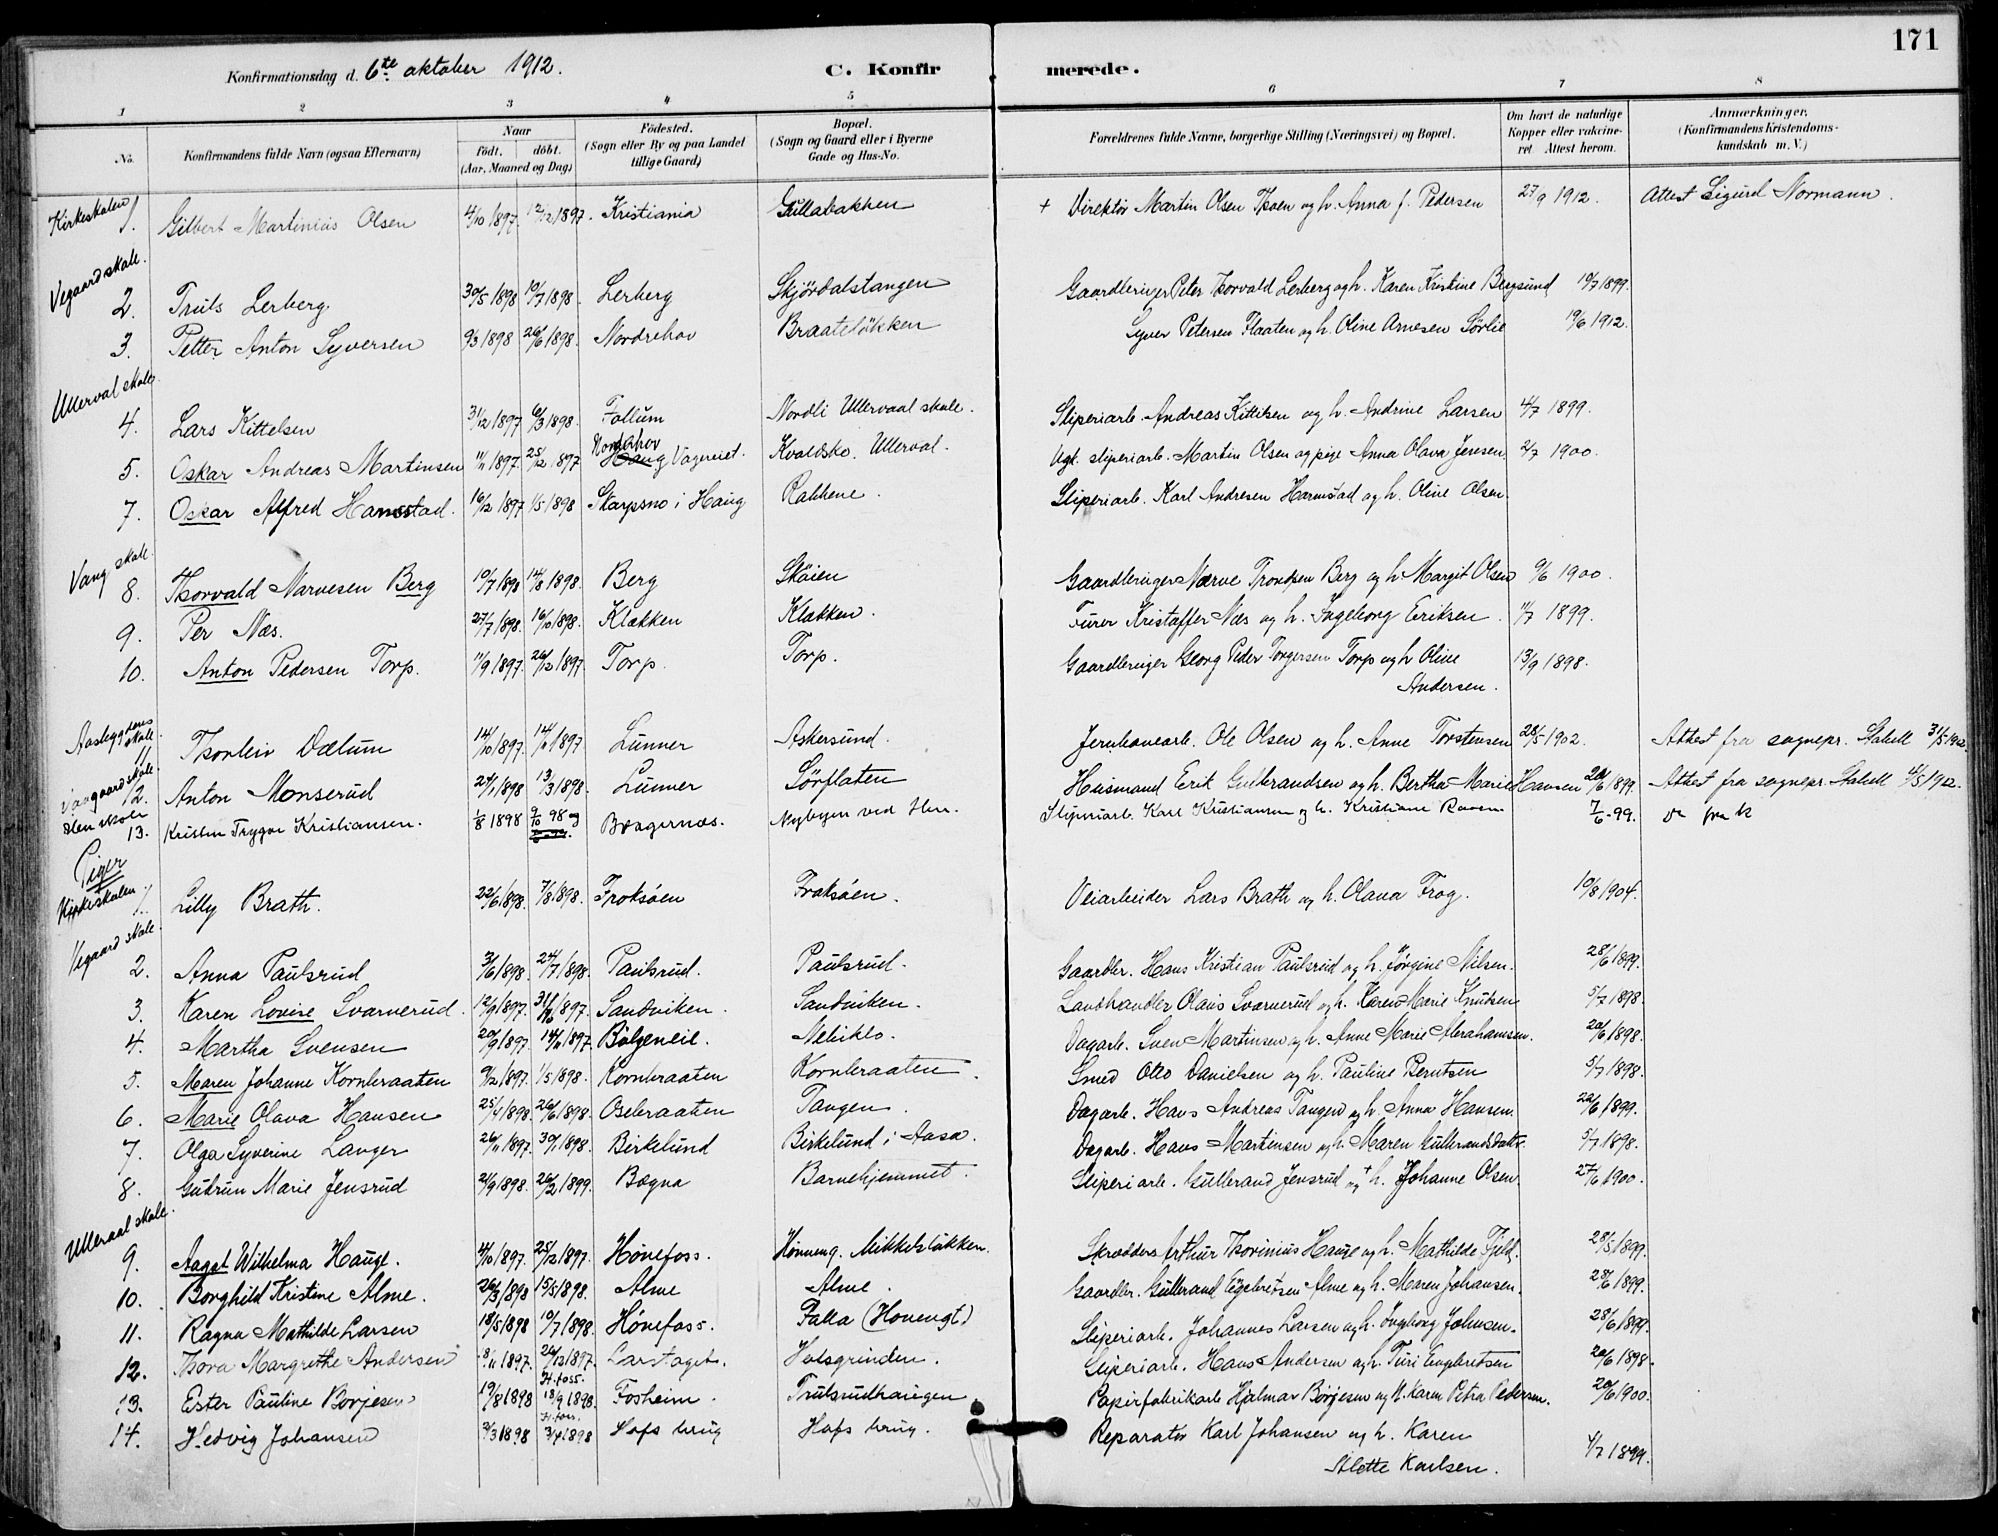 171
Konfirmationsdag d. 6te oktober 1912. C. Konfirmerede.
1 2 3 4 5 6 7 8
No. Konfirmandens fulde Navn (ogsaa Efternavn) Naar født, døbt. (Aar, Maaned og Dag) Fødested. (Sogn eller By og paa Landet tillige Gaard) Bopæl. (Sogn og Gaard eller i Byerne Gade og Hus-No. Forældrenes fulde Navne, borgerlige Stilling (Næringsvei) og Bopæl. Om havt de naturlige Kopper eller vakcineret. Attest herom. Anmærkninger. (Konfirmandens Kristendomskundskab m. V.)
Kirkeskolen
1. Gilbert Martinius Olsen 4/10 1897. 12/12 1897. Kristiania Gullabakken + Direktør Martin Olsen Thoen og h. Anna f. Pedersen 27/9 1912. Attest Sigurd Normann.
Vegaard skole.
2. Truls Lerberg. 30/5 1898 10/7 1898. Lerberg Skjørdalstangen Gaardbruger Peter Thorvald Lerberg og h. Karen Kristine Bergsund 10/7 1899.
3. Petter Anton Syversen 9/3 1898 26/6 1898. Nordrehov Braateløkken Syver Petersen Flaaten og h. Oline Arnesen Sørlie 19/6 1912.
Ullerval skole
4. Lars Kittelsen 31/12 1897 6/3 1898. Follum Nordli Ullervaal skole. Sliperiarb. Andreas Kittelsen og h. Andrine Larsen 4/7 1899.
5. Oskar Andreas Martinsen 11/11 1897. 25/12 1897 Nordrehov Haug Vagereiet. Kvaldsko. Ullerval. Ugt. sliperiarb. Martin Olsen og pige Anna Olava Jensen 2/7 1900.
7. Oskar Alfred Hanestad. 16/12 1897 1/5 1898 Skarpsno i Haug Rakkene. Sliperiarb. Karl Andresen Harmstad og h. Oline Olsen.
Vang skole.
8. Thorvald Narvesen Berg 10/7 1898 14/8 1898. Berg Skøien Gaardbruger Narve Trondsen Berg og h. Margit Olsen 9/6 1900.
9. Per Næs. 27/7 1898. 16/10 1898. Klækken Klækken. Furer Kristoffer Næs og h. Ingeborg Eriksen. 11/7 1899.
10. Anton Pedersen Torp. 11/9 1897. 26/12 1897. Torp. Torp. Gaardbruger Georg Peder Torgersen Torp og h Oline Andersen. 13/9 1898.
Aasbygdens skole
11 Thorleiv Dælum 14/10 1897. 14/11 1897 Lunner Askersund. Jernbanearb. Ole Olsen og h. Anne Torstensen 28/5 1902. Attest fra sognepr. Stabell 31/5 1912.
Vaagaard skole.
12. Anton Monserud 24/1 1898 13/3 1898. Lunner Sørflaten Husmand Erik Gulbrandsen og h. Bertha Marie Hansen 20/6 1899. Attest fra sognepr. Stabell 4/5 1912.
Hen skole
13. Kristen Trygve Kristiansen. 1/8 1898 9/10 98 og Bragernæs. Nybyen ved Hen. Sliperiarb. Karl Kristiansen og h. Kristiane Raven 7/6-99.
Piger
Kirkeskolen.
1. Lilly Brath. 22/6 1898. 7/8 1898. Froksøen Froksøen. Veiarbeider Lars Brath og h. Olava Frog. 10/8 1904.
Vegaard skole.
2. Anna Paulsrud 3/6 1898. 24/7 1898. Paulsrud. Paulsrud. Gaardbr. Hans Kristian Paulsrud og h. Jørgine Nilsen. 28/6 1899.
3. Karen Lovise Svarverud. 12/9 1897. 31/10 1897. Sandviken. Sandviken. Landhandler Olaus Svarverud og h. Karen Marie Knutsen 5/7 1898.
4. Martha Svensen 20/9 1897. 14/11 1897. Bølgeneie. Nebiklo. Dagarb. Sven Martinsen og h. Anne Marie Abrahamsen. 20/6 1898.
5. Maren Johanne Kornbraaten 9/12 1897. 1/5 1898. Kornbraaten Kornbraaten. Smed Otto Danielsen og h. Pauline Berntsen 5/7 1898.
6. Marie Olava Hansen 25/4 1898. 26/6 1898. Osebraaten Tangen. Dagarb. Hans Andreas Tangen og h. Anna Hansen. 22/6 1899.
7. Olga Syverine Langer 26/11 1897. 30/1 1898. Birkelund Birkelund i Aasa. Dagarb. Hans Martinsen og h. Maren Gulbrandsdatt. 5/7 1898.
8. Gudrun Marie Jensrud 21/9 1898. 26/2 1899. Bægna Barnehjemmet. Sliperiarb. Gulbrand Jensrud og + h. Johanne Olsen. 27/6 1900.
Ulleraal skole.
9. Aagot Wilhelma Hauge. 4/10 1897. 25/12 1897. Hønefoss. Hønneng. Mikkelsløkken. Skrædder Arthur Thorinius Hauge og h. Mathilde Fjeld. 28/5 1899.
10. Borghild Kristine Alme. 26/3 1898 15/5 1898. Alme Alme. Gaardbr. Gulbrand Engebretsen Alme og h. Maren Johansen. 28/6 1899.
11. Ragna Mathilde Larsen 18/5 1898 10/7 1898. Hønefoss. Falla (Hovengt) Sliperiarb. Johannes Larsen og h. Ingeborg Johnsen. 28/6 1899.
12. Thora Margrethe Andersen 8/11 1897. 26/12 1897. H.foss. Larstaget. Halsgrinden. Sliperiarb. Hans Andersen og h. Turi Engebretsen 20/6 1898.
13. Ester Pauline Borjesen 19/8 1898 18/9 1898. H.foss. Fosheim. Trulsrudhaugen Papirfabrikarb Hjalmar Børjesen og h. Karen Petra Pedersen. 20/6 1900.
14. Hedvig Johansen 3/3 1898 3/4 1898 Hofs brug Hofs brug. Reparatør Karl Johansen og h. Karen Alette Karlsen. 4/7 1899.